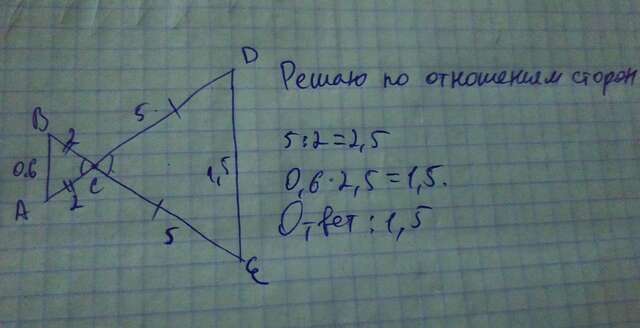 D
Решаю по отношениям сторон
5
B
2
5:2=2,5
0,6
C
1,5
0,6·2,5=1,5.
A
2
5
Ответ: 1,5
E